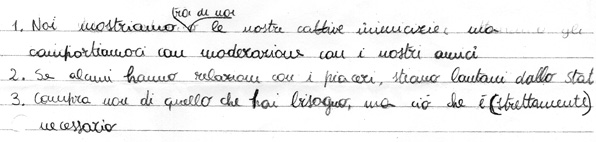 tra di noi
1. Noi mostriamo le nostre cattive inimicizie, ma gli
comportiamoci con moderazione con i nostri amici
2. Se alcuni hanno relazioni con i piaceri, stiano lontani dallo stat
3. Compra non di quello che hai bisogno, ma ciò che è (strettamente)
necessario